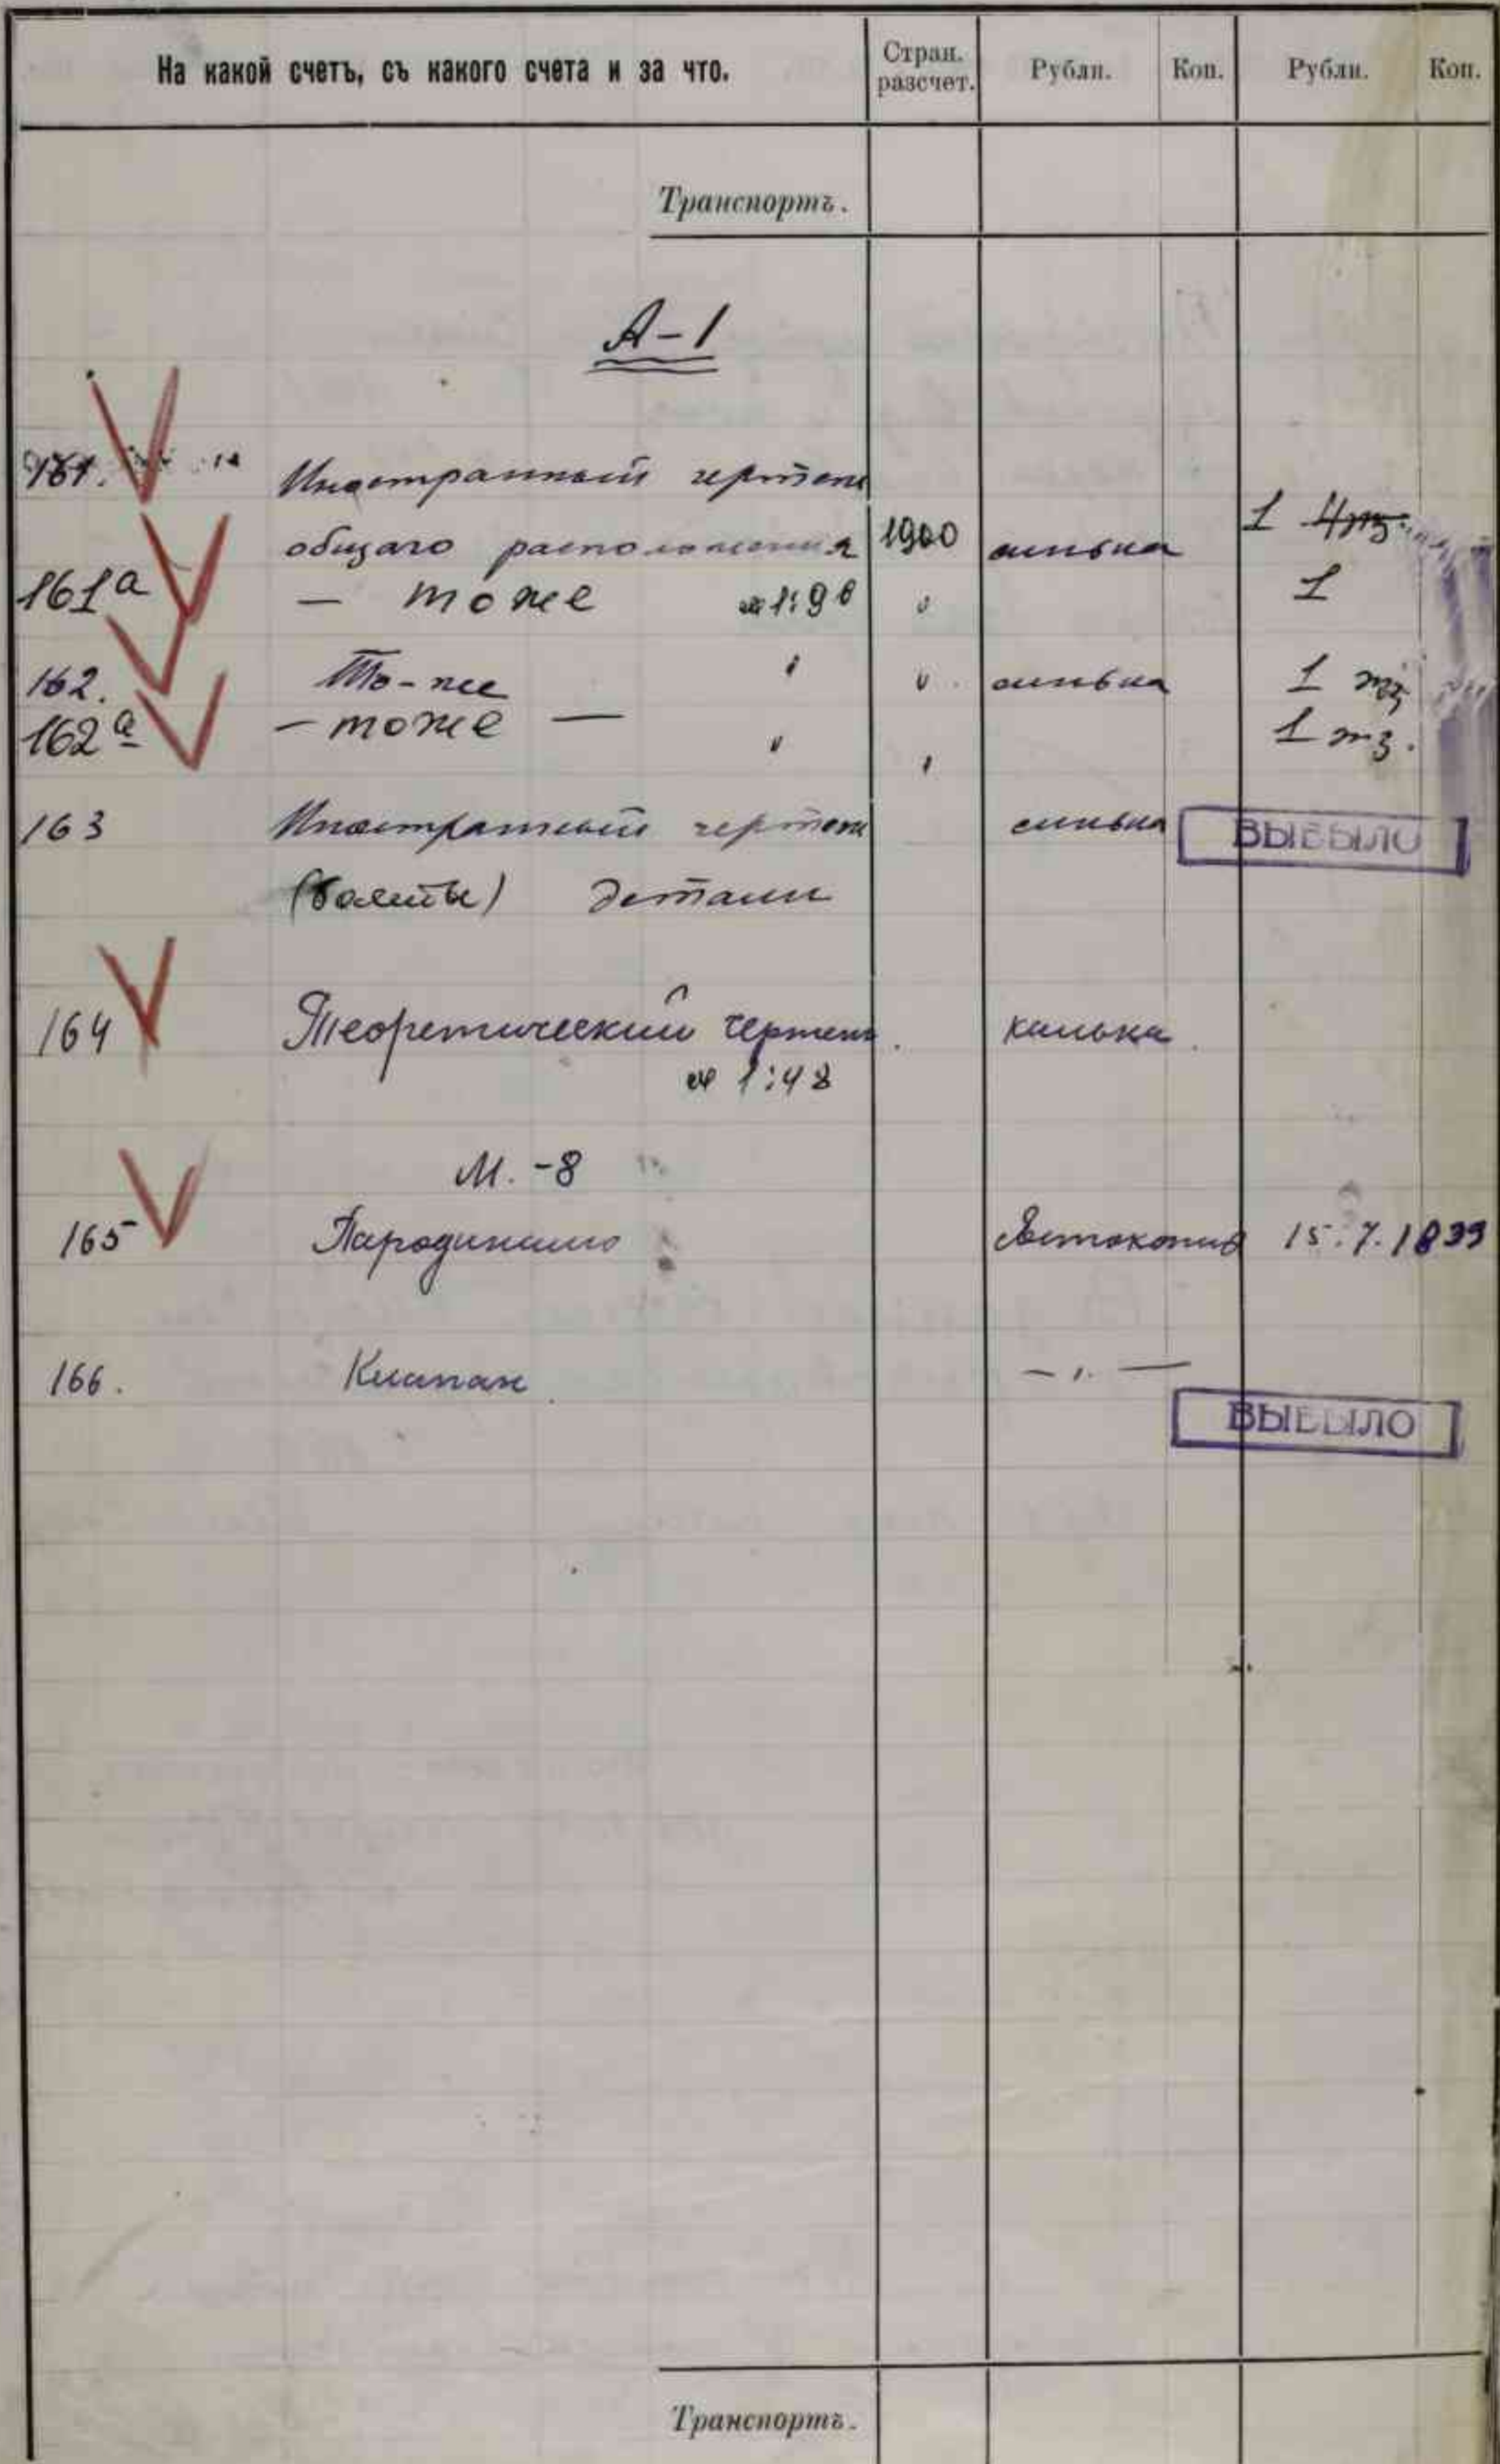 На какой счетъ, съ какого счета и за что. Стран. разсчет. Рубли. Коп. Рубли. Коп.
Транспортъ.
А-1
161. Иностранный чертеж
общаго расположения 1900 синька 1 4 экз.
161а — тоже м 1:96 " 1
162. То-же " " синька 1 экз
162а — тоже — " " 1 экз.
163 Иностранный чертеж синька ВЫБЫЛО
детали
164 Теоретический чертеж. калька.
м 1:48
М.-8
165 Пародинамо Светокопия 15.7.1899
166. Клапан — " —
ВЫБЫЛО
Транспортъ.